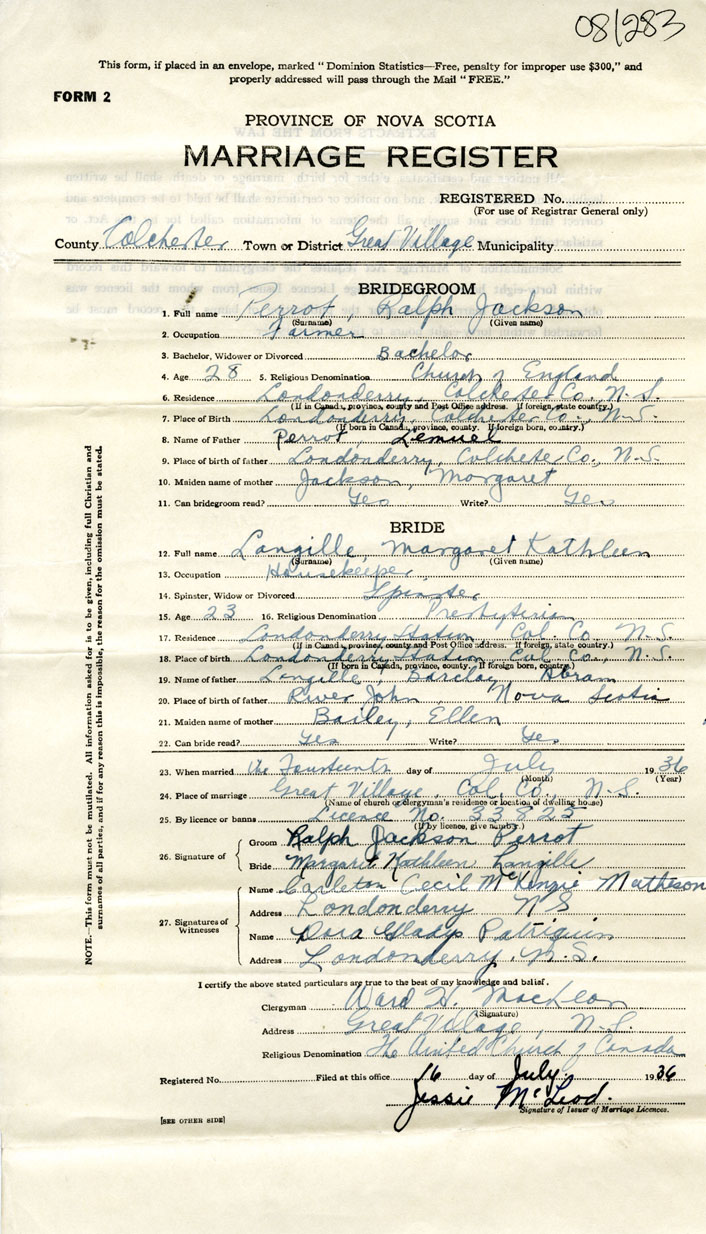 08/283
This form, if placed in an envelope, marked "Dominion Statistics—Free, penalty for improper use $300," and
properly addressed will pass through the Mail "FREE."
FORM 2
PROVINCE OF NOVA SCOTIA
MARRIAGE REGISTER
REGISTERED No.
(For use of Registrar General only)
County Colchester Town or District Great Village Municipality
BRIDEGROOM
1. Full name Perrot, Ralph Jackson
(Surname) (Given name)
2. Occupation Farmer
3. Bachelor, Widower or Divorced Bachelor
4. Age 28 5. Religious Denomination Church of England
6. Residence Londonderry, Colchester Co., N.S.
(If in Canada, province, county and Post Office address. If foreign, state country.)
7. Place of Birth Londonderry, Colchester Co., N.S.
(If born in Canada, province, county. If foreign born, country.)
8. Name of Father Perrot, Lemuel
9. Place of birth of father Londonderry, Colchester Co., N.S.
10. Maiden name of mother Jackson, Margaret
11. Can bridegroom read? Yes Write? Yes
BRIDE
12. Full name Langille, Margaret Kathleen
(Surname) (Given name)
13. Occupation Housekeeper
14. Spinster, Widow or Divorced Spinster
15. Age 23 16. Religious Denomination Presbyterian
17. Residence Londonderry Station Col. Co. N.S.
(If in Canada, province, county and Post Office address. If foreign, state country.)
18. Place of birth Londonderry Station, Col. Co., N.S.
(If born in Canada, province, county. If foreign born, country.)
19. Name of father Langille, Barclay Abram
20. Place of birth of father River John Nova Scotia
21. Maiden name of mother Bailey, Ellen
22. Can bride read? Yes Write? Yes
23. When married the Fourteenth day of July 1936
(Month) (Year)
24. Place of marriage Great Village, Col. Co., N.S.
(Name of church or clergyman's residence or location of dwelling house)
25. By licence or banns Licence No. 33825
(If by licence, give number.)
26. Signature of Groom Ralph Jackson Perrot
Bride Margaret Kathleen Langille
27. Signatures of Witnesses Name Carleton Cecil McKenzie Matheson
Address Londonderry N S
Name Dora Gladys Patriquin
Address Londonderry, N.S.
I certify the above stated particulars are true to the best of my knowledge and belief.
Clergyman Ward H. MacLean
(Signature)
Address Great Village, N.S.
Religious Denomination The United Church of Canada
Registered No. Filed at this office 16 day of July 1936
Jessie McLeod.
Signature of Issuer of Marriage Licences.
[SEE OTHER SIDE]
NOTE.—This form must not be mutilated. All information asked for is to be given, including full Christian and
surnames of all parties, and if for any reason this is impossible, the reason for the omission must be stated.